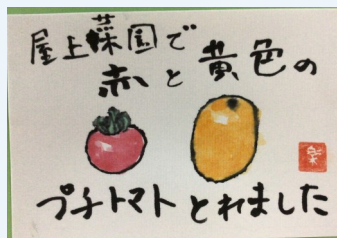 屋上菜園で
赤と黄色の
プチトマトとれました